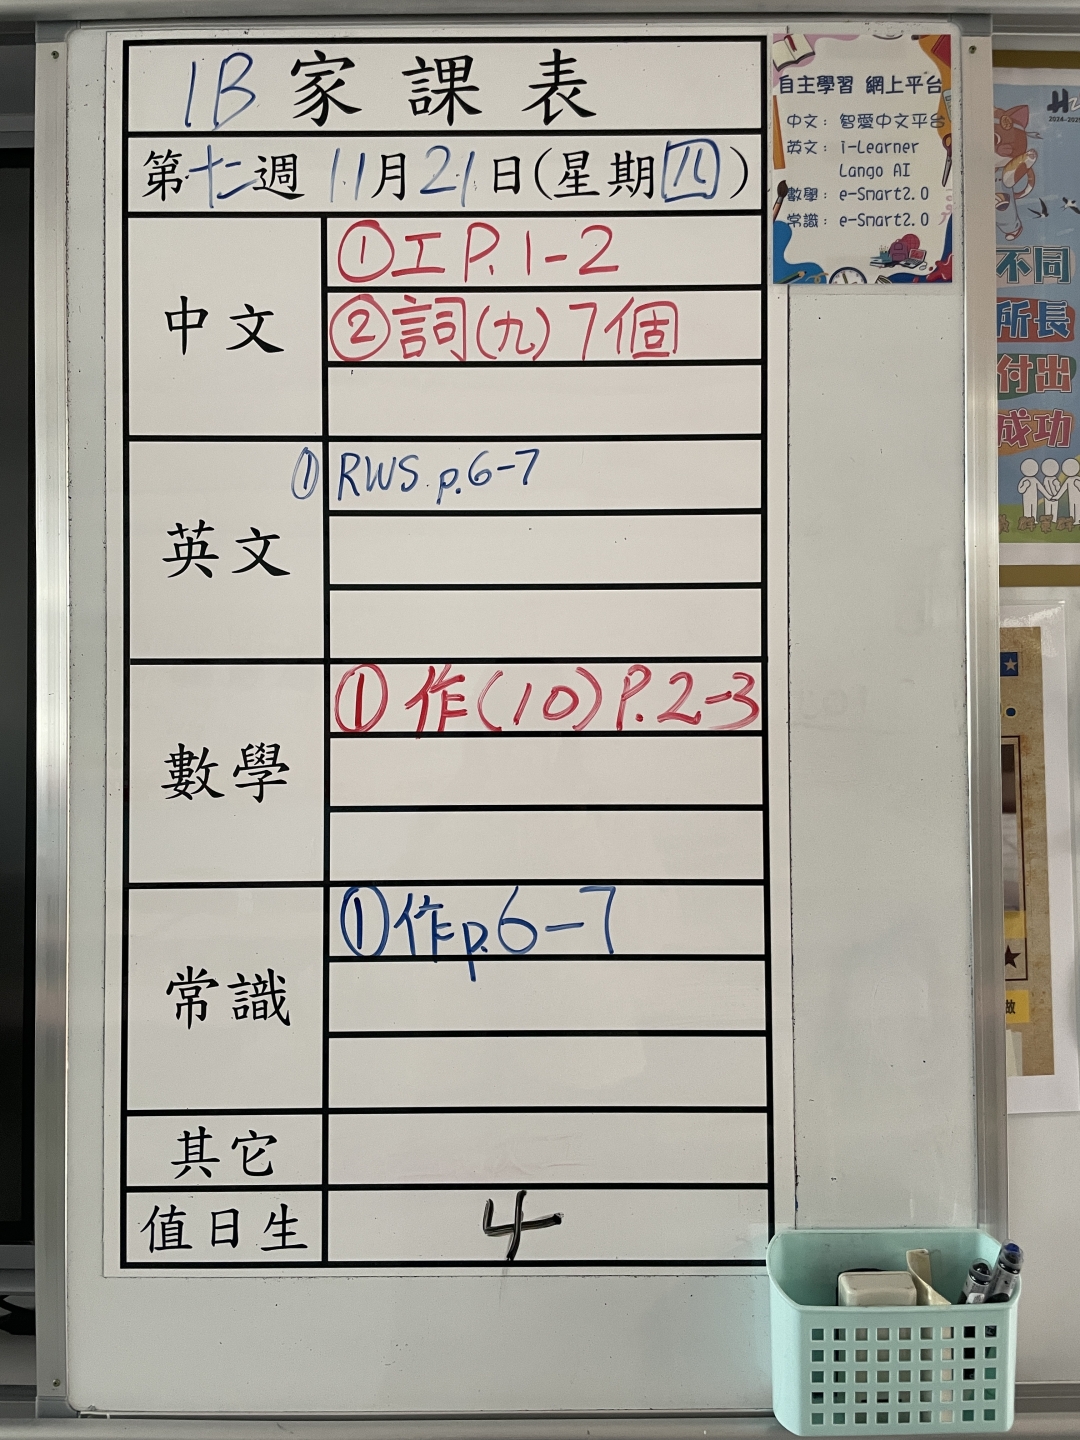 1B 家課表
第十二週 11月21日(星期四)
中文
①工P.1-2
②詞(九)7個
英文
① RWS p.6-7
數學
①作(10)P.2-3
常識
①作p.6-7
其它
值日生
4
自主學習 網上平台
中文：智愛中文平台
英文：i-Learner
Lango AI
數學：e-Smart2.0
常識：e-Smart2.0
2024-2025
不同
所長
付出
成功